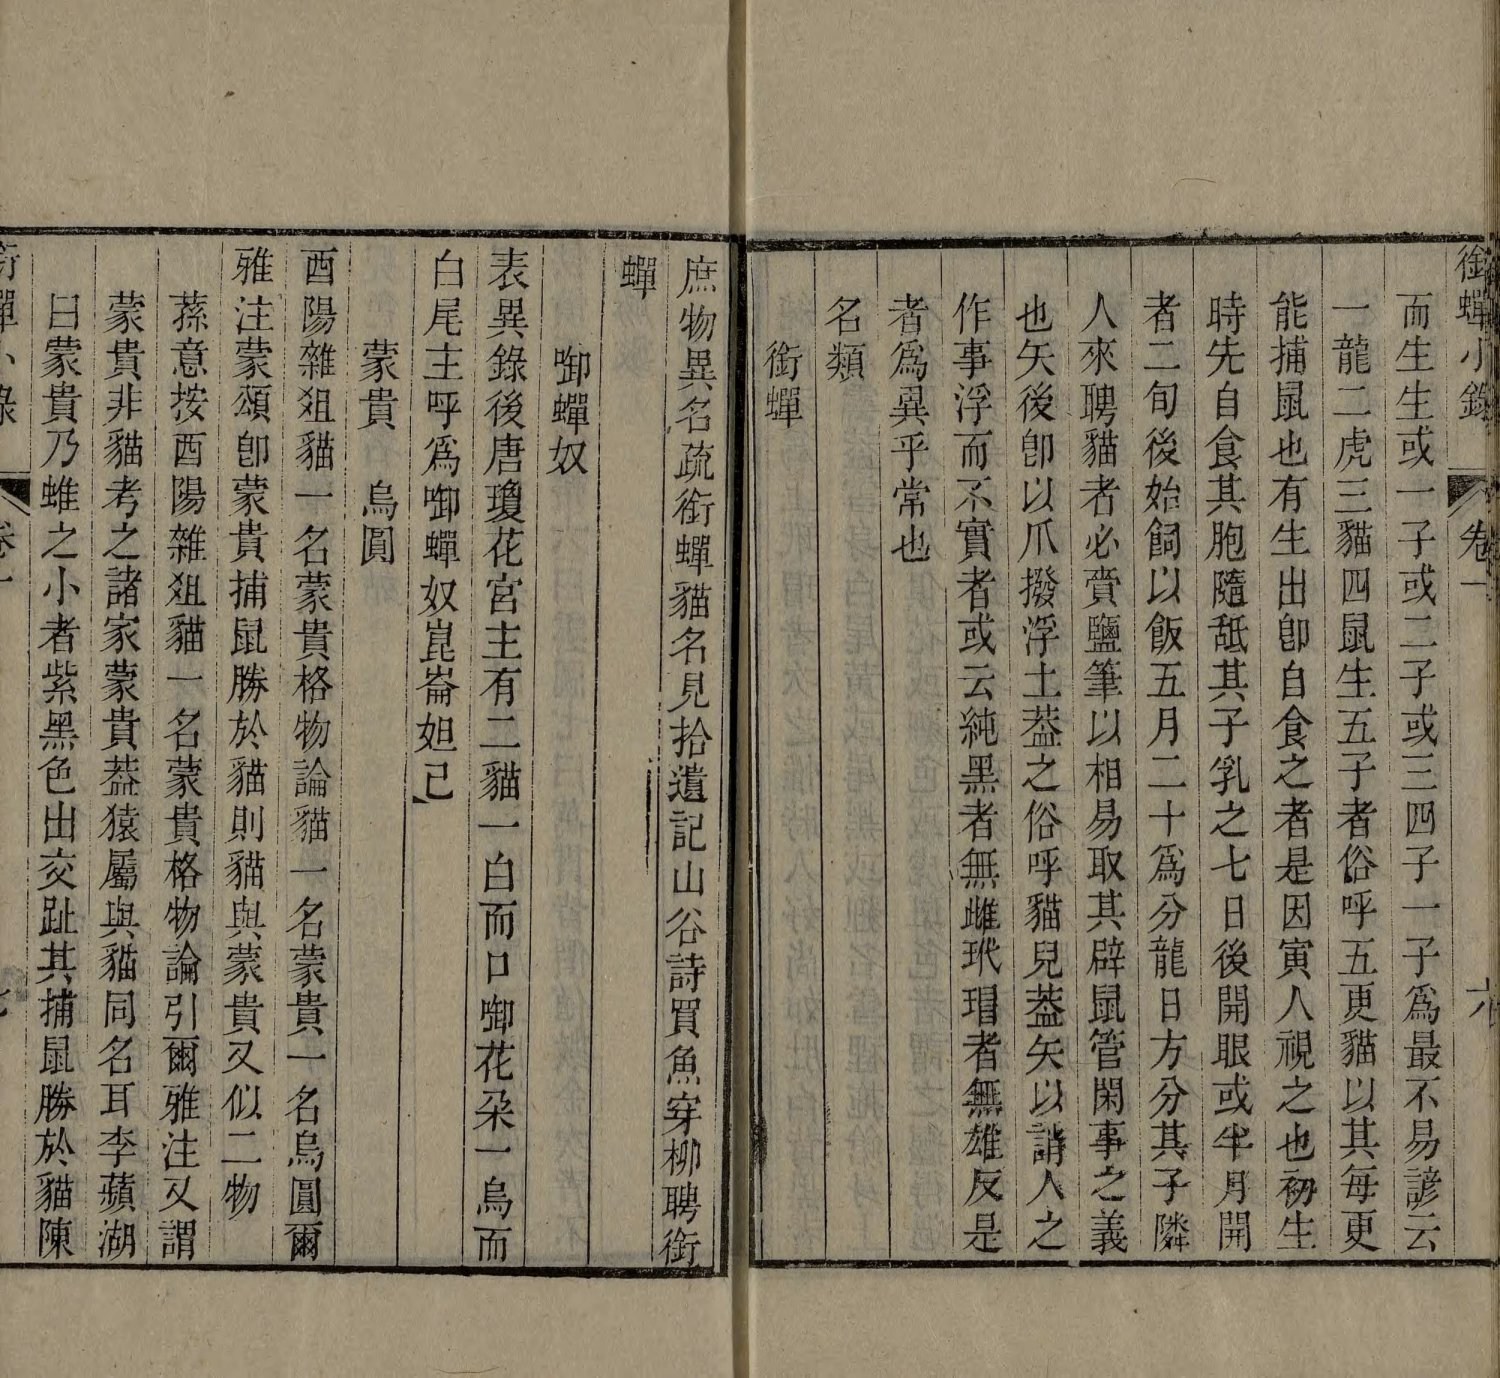 銜蟬小錄 卷一 六
而生生或一子或二子或三四子一子爲最不易諺云
一龍二虎三貓四鼠生五子者俗呼五更貓以其每更
能捕鼠也有生出卽自食之者是因寅人視之也初生
時先自食其胞隨舐其子乳之七日後開眼或半月開
者二旬後始飼以飯五月二十爲分龍日方分其子隣
人來聘貓者必賫鹽筆以相易取其辟鼠管閑事之義
也矢後卽以爪撥浮土葢之俗呼貓兒葢矢以誚人之
作事浮而不實者或云純黑者無雌玳瑁者無雄反是
者爲異乎常也
名類
銜蟬
庶物異名疏銜蟬貓名見拾遺記山谷詩買魚穿柳聘銜
蟬
啣蟬奴
表異錄後唐瓊花宮主有二貓一白而口啣花朶一烏而
白尾主呼爲啣蟬奴崑崙妲己
蒙貴 烏圓
酉陽雜爼貓一名蒙貴格物論貓一名蒙貴一名烏圓爾
雅注蒙頌卽蒙貴捕鼠勝於貓則貓與蒙貴又似二物
蓀意按酉陽雜爼貓一名蒙貴格物論引爾雅注又謂
蒙貴非貓考之諸家蒙貴葢猿屬與貓同名耳李蘋湖
曰蒙貴乃蜼之小者紫黑色出交趾其捕鼠勝於貓陳
銜蟬小錄 卷一 七